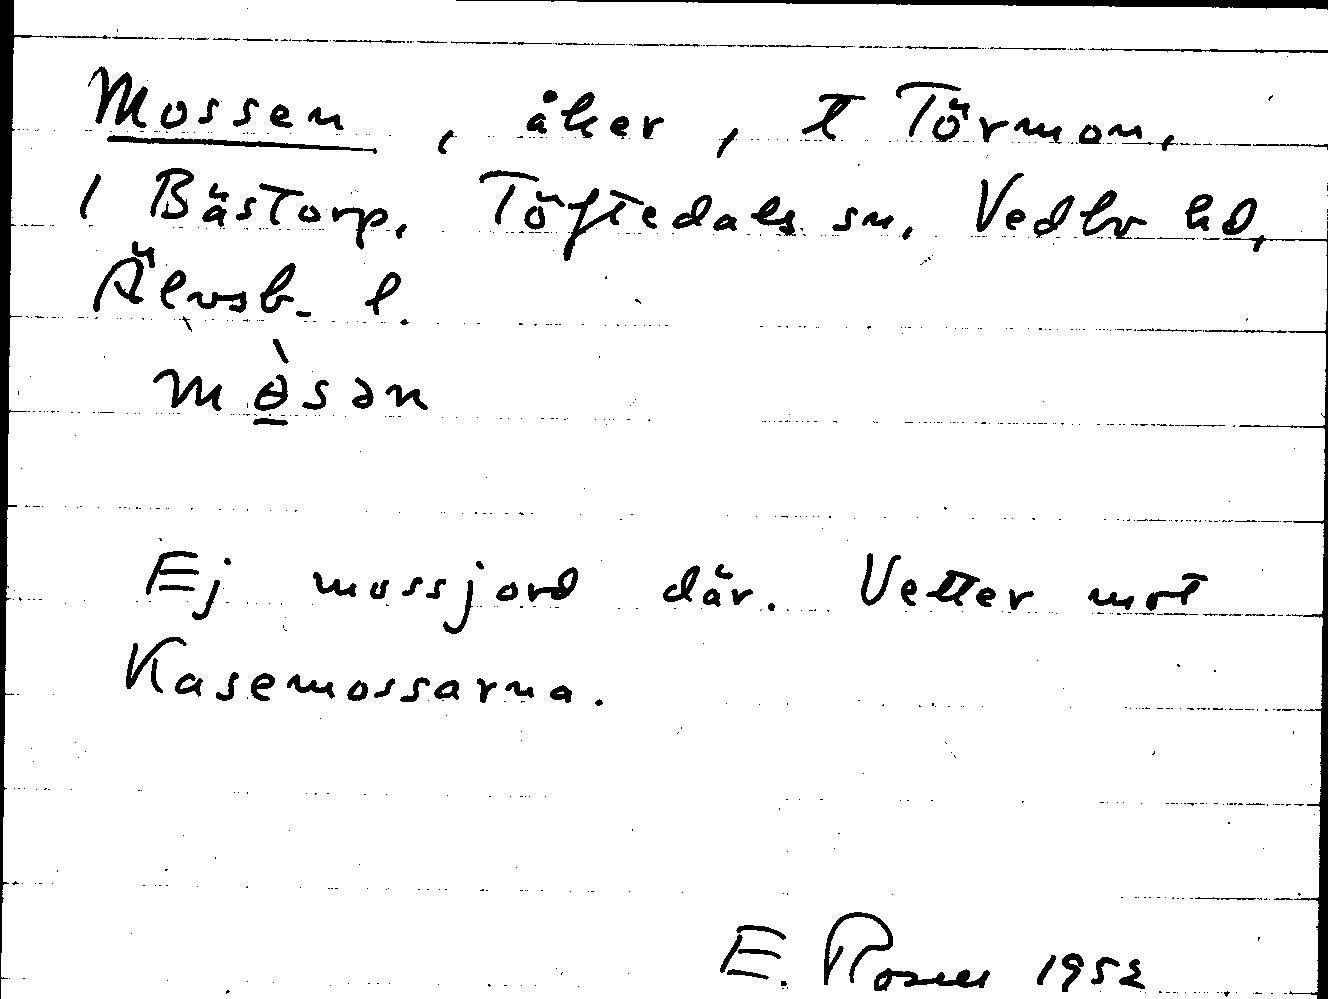 Mossen, åker, t Törmon,
1 Bästorp, Töftedals sn, Vedbo hd,
Älvsb. l.
mɵ̀sən
Ej mossjord där. Vetter mot
Kasemossarna.
E. Rosell 1952